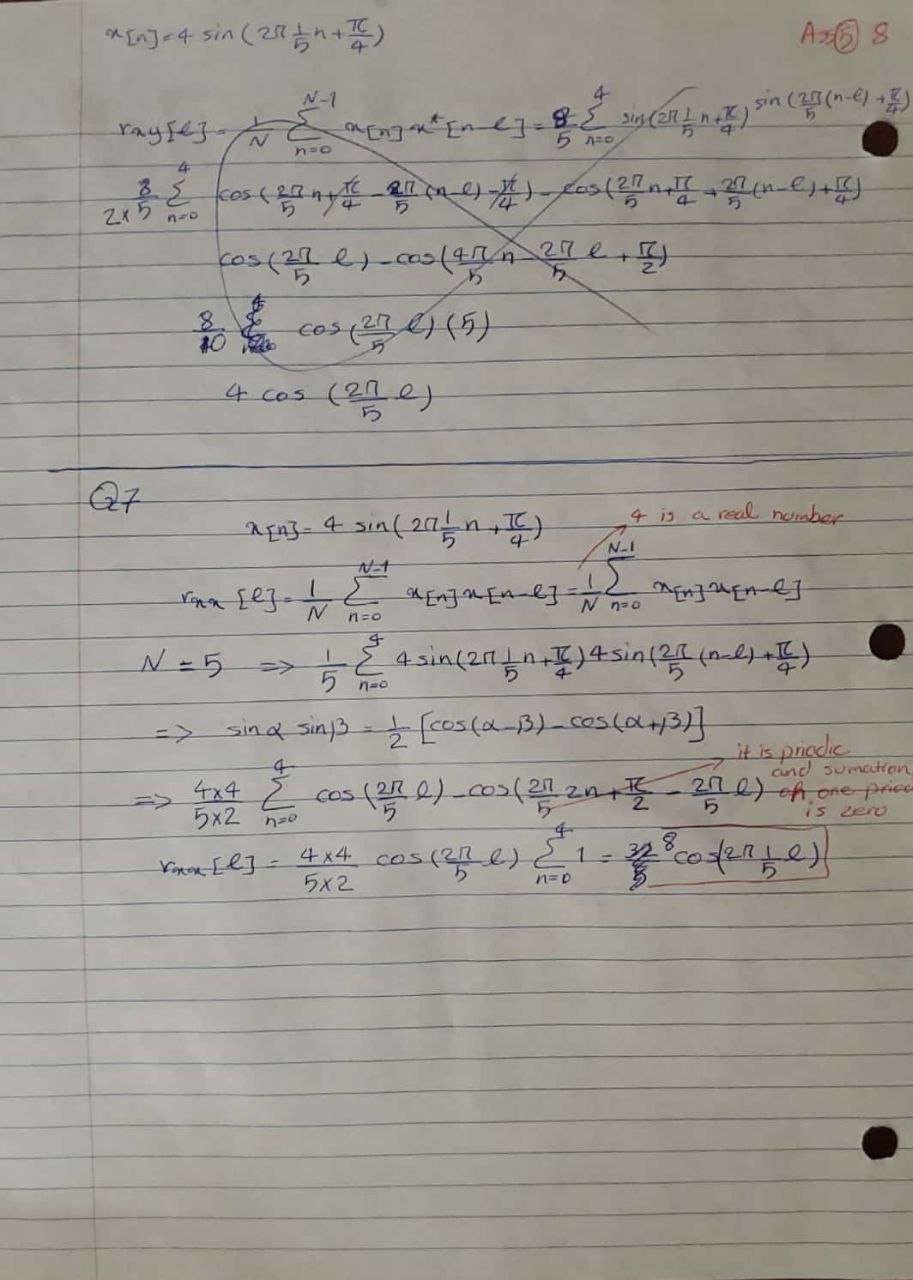 x[n]=4 sin(2π 1/5 n + π/4)
As ⑤ 8
rxy[l] = 1/N Σ_{n=0}^{N-1} x[n] x*[n-l] = 8/5 Σ_{n=0}^{4} sin(2π 1/5 n + π/4) sin(2π/5 (n-l) + π/4)
8/2×5 Σ_{n=0}^{4} cos(2π/5 n + π/4 - 2π/5 (n-l) - π/4) - cos(2π/5 n + π/4 + 2π/5 (n-l) + π/4)
cos(2π/5 l) - cos(4π/5 n - 2π/5 l + π/2)
8/10 cos(2π/5 l) (5)
4 cos (2π/5 l)
Q7
x[n] = 4 sin(2π 1/5 n + π/4)
4 is a real number
rxx[l] = 1/N Σ_{n=0}^{N-1} x[n]x[n-l] = 1/N Σ_{n=0}^{N-1} x[n]x[n-l]
N = 5 => 1/5 Σ_{n=0}^{4} 4sin(2π 1/5 n + π/4) 4sin(2π/5 (n-l) + π/4)
=> sinα sinβ = 1/2 [cos(α-β) - cos(α+β)]
it is priodic
and sumation
=> 4×4/5×2 Σ_{n=0}^{4} cos(2π/5 l) - cos(2π/5 2n + π/2 - 2π/5 l)
of one priod
is zero
rxx[l] = 4×4/5×2 cos(2π/5 l) Σ_{n=0}^{4} 1 = 8 cos(2π 1/5 l)